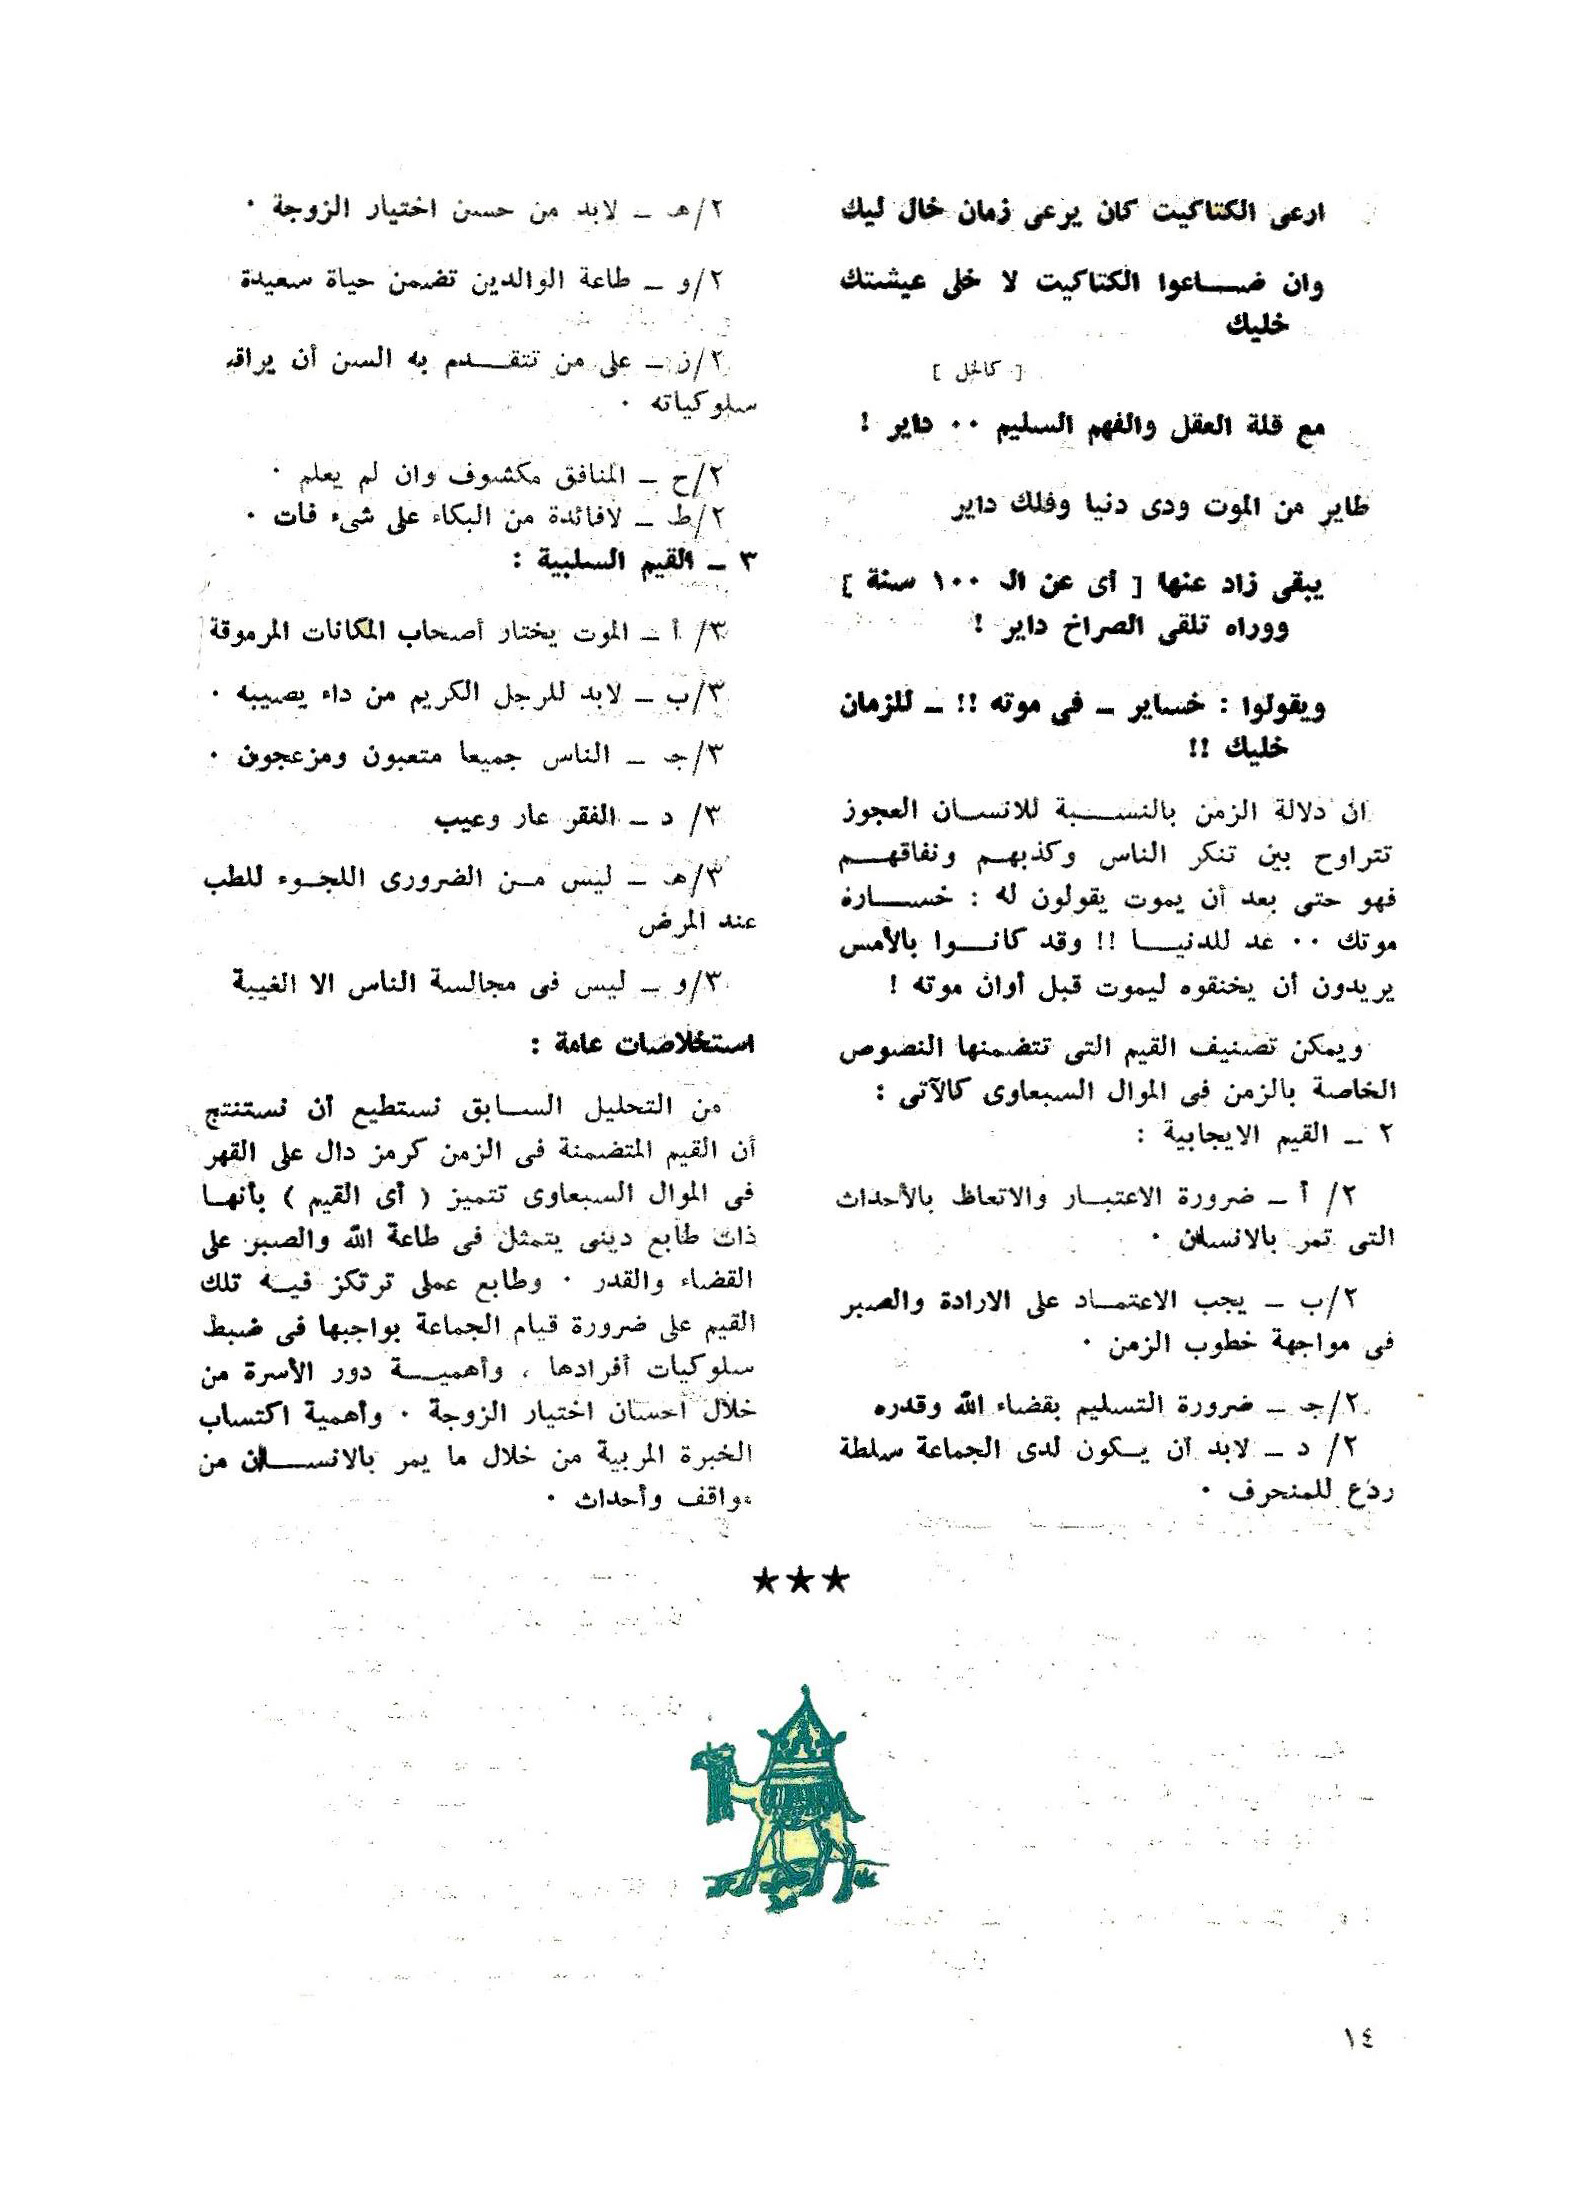 ارعى الكتاكيت كان يرعى زمان خال ليك
وان ضاعوا الكتاكيت لا خلى عيشتك
خليك
[ كالخل ]
مع قلة العقل والفهم السليم ٠٠ داير !
طاير من الموت ودى دنيا وفلك داير
يبقى زاد عنها [ أى عن الـ ١٠٠ سنة ]
ووراه تلقى الصراخ داير !
ويقولوا : خساير ــ فى موته !! ــ للزمان
خليك !!
ان دلالة الزمن بالنسبة للانسان العجوز
تتراوح بين تنكر الناس وكذبهم ونفاقهم
فهو حتى بعد أن يموت يقولون له : خسارة
موتك ٠٠ عد للدنيا !! وقد كانوا بالأمس
يريدون أن يخنقوه ليموت قبل أوان موته !
ويمكن تصنيف القيم التى تتضمنها النصوص
الخاصة بالزمن فى الموال السبعاوى كالآتى :
٢ ــ القيم الايجابية :
٢/ أ ــ ضرورة الاعتبار والاتعاظ بالأحداث
التى تمر بالانسان ٠
٢/ب ــ يجب الاعتماد على الارادة والصبر
فى مواجهة خطوب الزمن ٠
٢/جـ ــ ضرورة التسليم بقضاء الله وقدره
٢/ د ــ لابد أن يكون لدى الجماعة سلطة
ردع للمنحرف ٠
٢/هـ ــ لابد من حسن اختيار الزوجة ٠
٢/و ــ طاعة الوالدين تضمن حياة سعيدة
٢/ز ــ على من تتقدم به السن أن يراقب
سلوكياته ٠
٢/ح ــ المنافق مكشوف وان لم يعلم ٠
٢/ط ــ لافائدة من البكاء على شىء فات ٠
٣ ــ القيم السلبية :
٣/ أ ــ الموت يختار أصحاب المكانات المرموقة
٣/ب ــ لابد للرجل الكريم من داء يصيبه ٠
٣/جـ ــ الناس جميعا متعبون ومزعجون ٠
٣/ د ــ الفقر عار وعيب
٣/هـ ــ ليس من الضرورى اللجوء للطب
عند المرض
٣/و ــ ليس فى مجالسة الناس الا الغيبة
استخلاصات عامة :
من التحليل السابق نستطيع أن نستنتج
أن القيم المتضمنة فى الزمن كرمز دال على القهر
فى الموال السبعاوى تتميز ( أى القيم ) بأنها
ذات طابع دينى يتمثل فى طاعة الله والصبر على
القضاء والقدر ٠ وطابع عملى ترتكز فيه تلك
القيم على ضرورة قيام الجماعة بواجبها فى ضبط
سلوكيات أفرادها ، وأهمية دور الأسرة من
خلال احسان اختيار الزوجة ٠ وأهمية اكتساب
الخبرة المربية من خلال ما يمر بالانسان من
مواقف وأحداث ٠
★★★
١٤